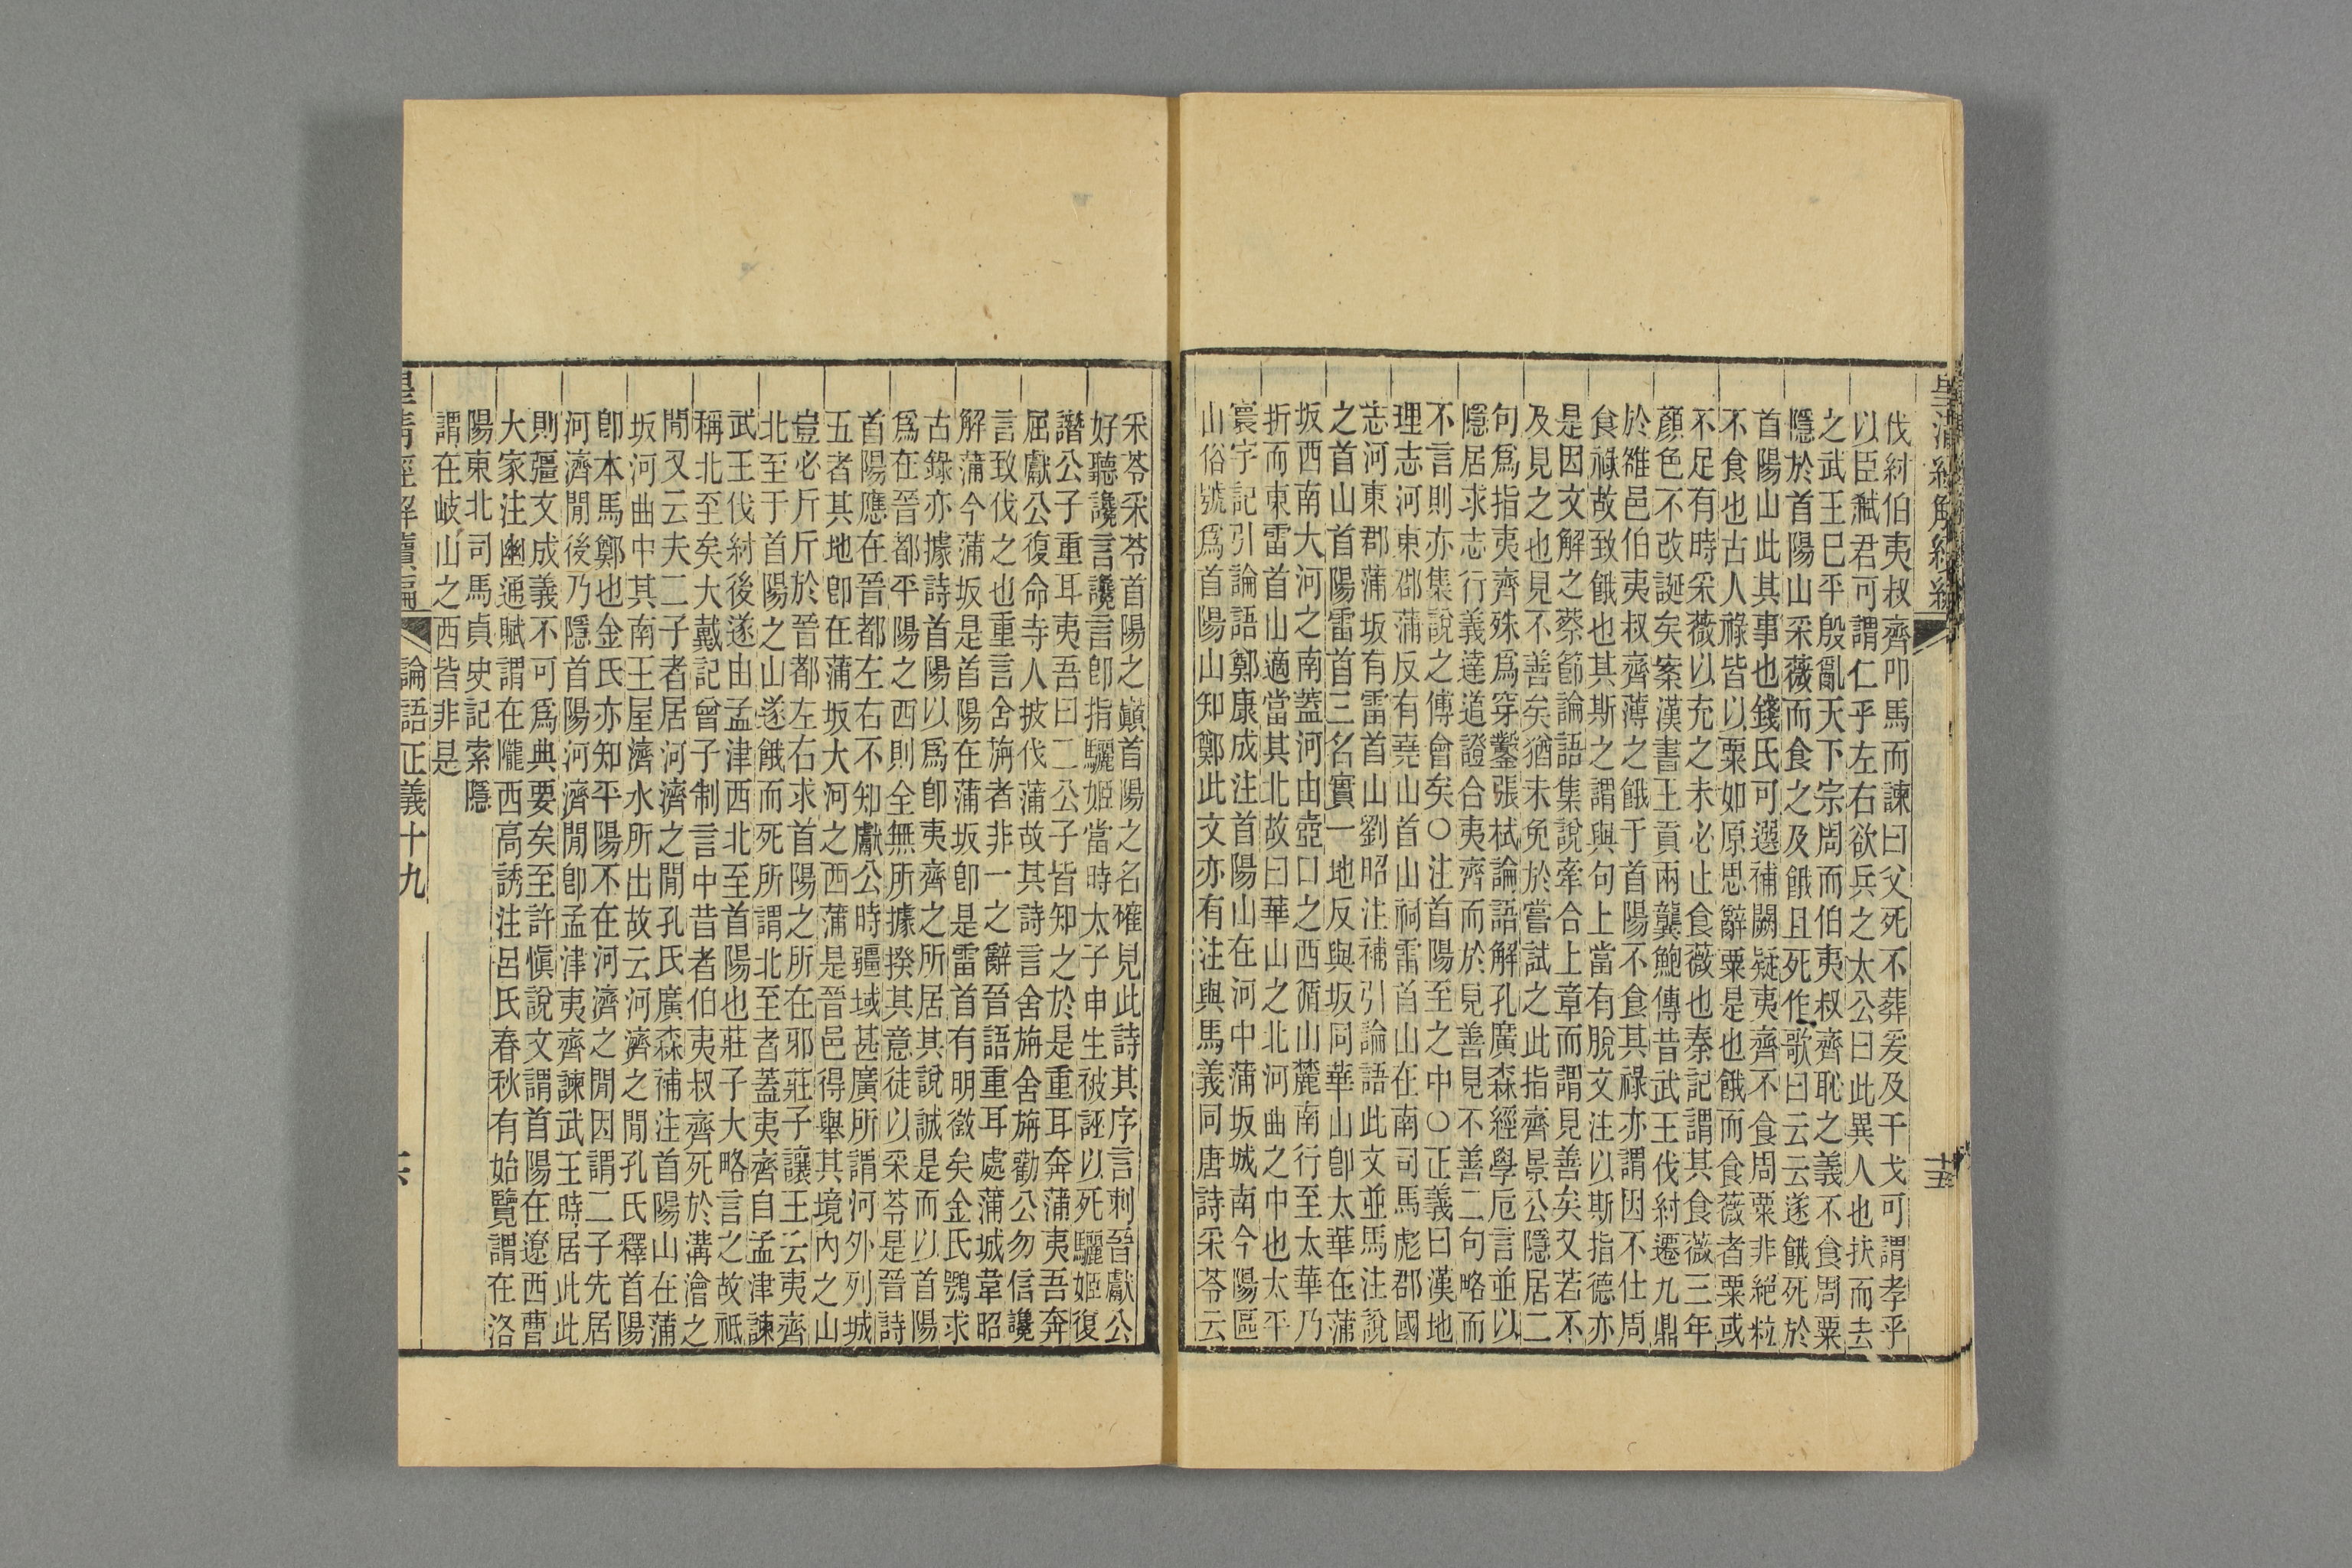 皇清經解續編
十五
伐紂伯夷叔齊叩馬而諫曰父死不葬爰及干戈可謂孝乎
以臣弒君可謂仁乎左右欲兵之太公曰此異人也扶而去
之武王巳平殷亂天下宗周而伯夷叔齊恥之義不食周粟
隱於首陽山采薇而食之及餓且死作歌曰云云遂餓死於
首陽山此其事也錢氏可選補闕疑夷齊不食周粟非絕粒
不食也古人祿皆以粟如原思辭粟是也餓而食薇者粟或
不足有時采薇以充之未必止食薇也秦記謂其食薇三年
顏色不改誕矣案漢書王貢兩龔鮑傳昔武王伐紂遷九鼎
於雒邑伯夷叔齊薄之餓于首陽不食其祿亦謂因不仕周
食祿故致餓也其斯之謂與句上當有脫文注以斯指德亦
是因文解之蔡節論語集說牽合上章而謂見善矣又若不
及見之也見不善矣猶未免於嘗試之此指齊景公隱居二
句爲指夷齊殊爲穿鑿張栻論語解孔廣森經學卮言並以
隱居求志行義達道證合夷齊而於見善見不善二句略而
不言則亦集說之傅會矣○注首陽至之中○正義曰漢地
理志河東郡蒲反有堯山首山祠雷首山在南司馬彪郡國
志河東郡蒲坂有雷首山劉昭注補引論語此文並馬注說
之首山首陽雷首三名實一地反與坂同華山卽太華在蒲
坂西南大河之南蓋河由壺口之西循山麓南行至太華乃
折而東雷首山適當其北故曰華山之北河曲之中也太平
寰宇記引論語鄭康成注首陽山在河中蒲坂城南今陽區
山俗號爲首陽山知鄭此文亦有注與馬義同唐詩采苓云
采苓采苓首陽之巔首陽之名確見此詩其序言刺晉獻公
好聽讒言讒言卽指驪姬當時太子申生被誣以死驪姬復
譖公子重耳夷吾曰二公子皆知之於是重耳奔蒲夷吾奔
屈獻公復命寺人披伐蒲故其詩言舍旃舍旃勸公勿信讒
言致伐之也重言舍旃者非一之辭晉語重耳處蒲城韋昭
解蒲今蒲坂是首陽在蒲坂卽是雷首有明徵矣金氏鶚求
古錄亦據詩首陽以爲卽夷齊之所居其說誠是而以首陽
爲在晉都平陽之西則全無所據揆其意徒以采苓是晉詩
首陽應在晉都左右不知獻公時疆域甚廣所謂河外列城
五者其地卽在蒲坂大河之西蒲是晉邑得舉其境內之山
豈必斤斤於晉都左右求首陽之所在邪莊子讓王云夷齊
北至于首陽之山遂餓而死所謂北至者蓋夷齊自孟津諫
武王伐紂後遂由孟津西北至首陽也莊子大略言之故祇
稱北至矣大戴記曾子制言中昔者伯夷叔齊死於溝澮之
閒又云夫二子者居河濟之閒孔氏廣森補注首陽山在蒲
坂河曲中其南王屋濟水所出故云河濟之閒孔氏釋首陽
卽本馬鄭也金氏亦知平陽不在河濟之閒因謂二子先居
河濟閒後乃隱首陽河濟閒卽孟津夷齊諫武王時居此此
則疆文成義不可爲典要矣至許愼說文謂首陽在遼西曹
大家注幽通賦謂在隴西高誘注呂氏春秋有始覽謂在洛
陽東北司馬貞史記索隱
謂在岐山之西皆非是
皇清經解續編
論語正義十九